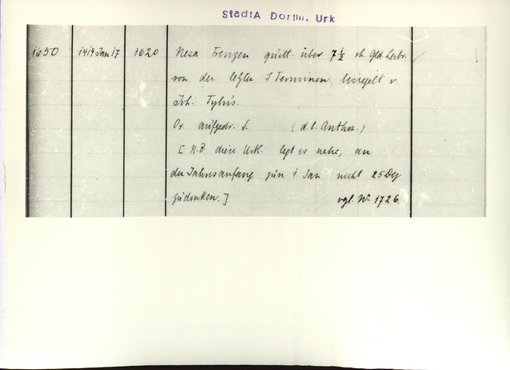 StadtA Dortm. Urk
1650 1419 Jan 17 1620 Nesa Frenzen quitt. über 7½ rh. Gld. Leibr.
von der letzten 2 Terminen, besiegelt v.
Joh. Tybis.
Or. aufgedr. S. (d. l. Anthon.)
[N.B. diese Urk. legt es nahe, an
den Jahresanfang zum 1. Jan nicht 25 Dez
zu denken.] vgl. Nr 1726.